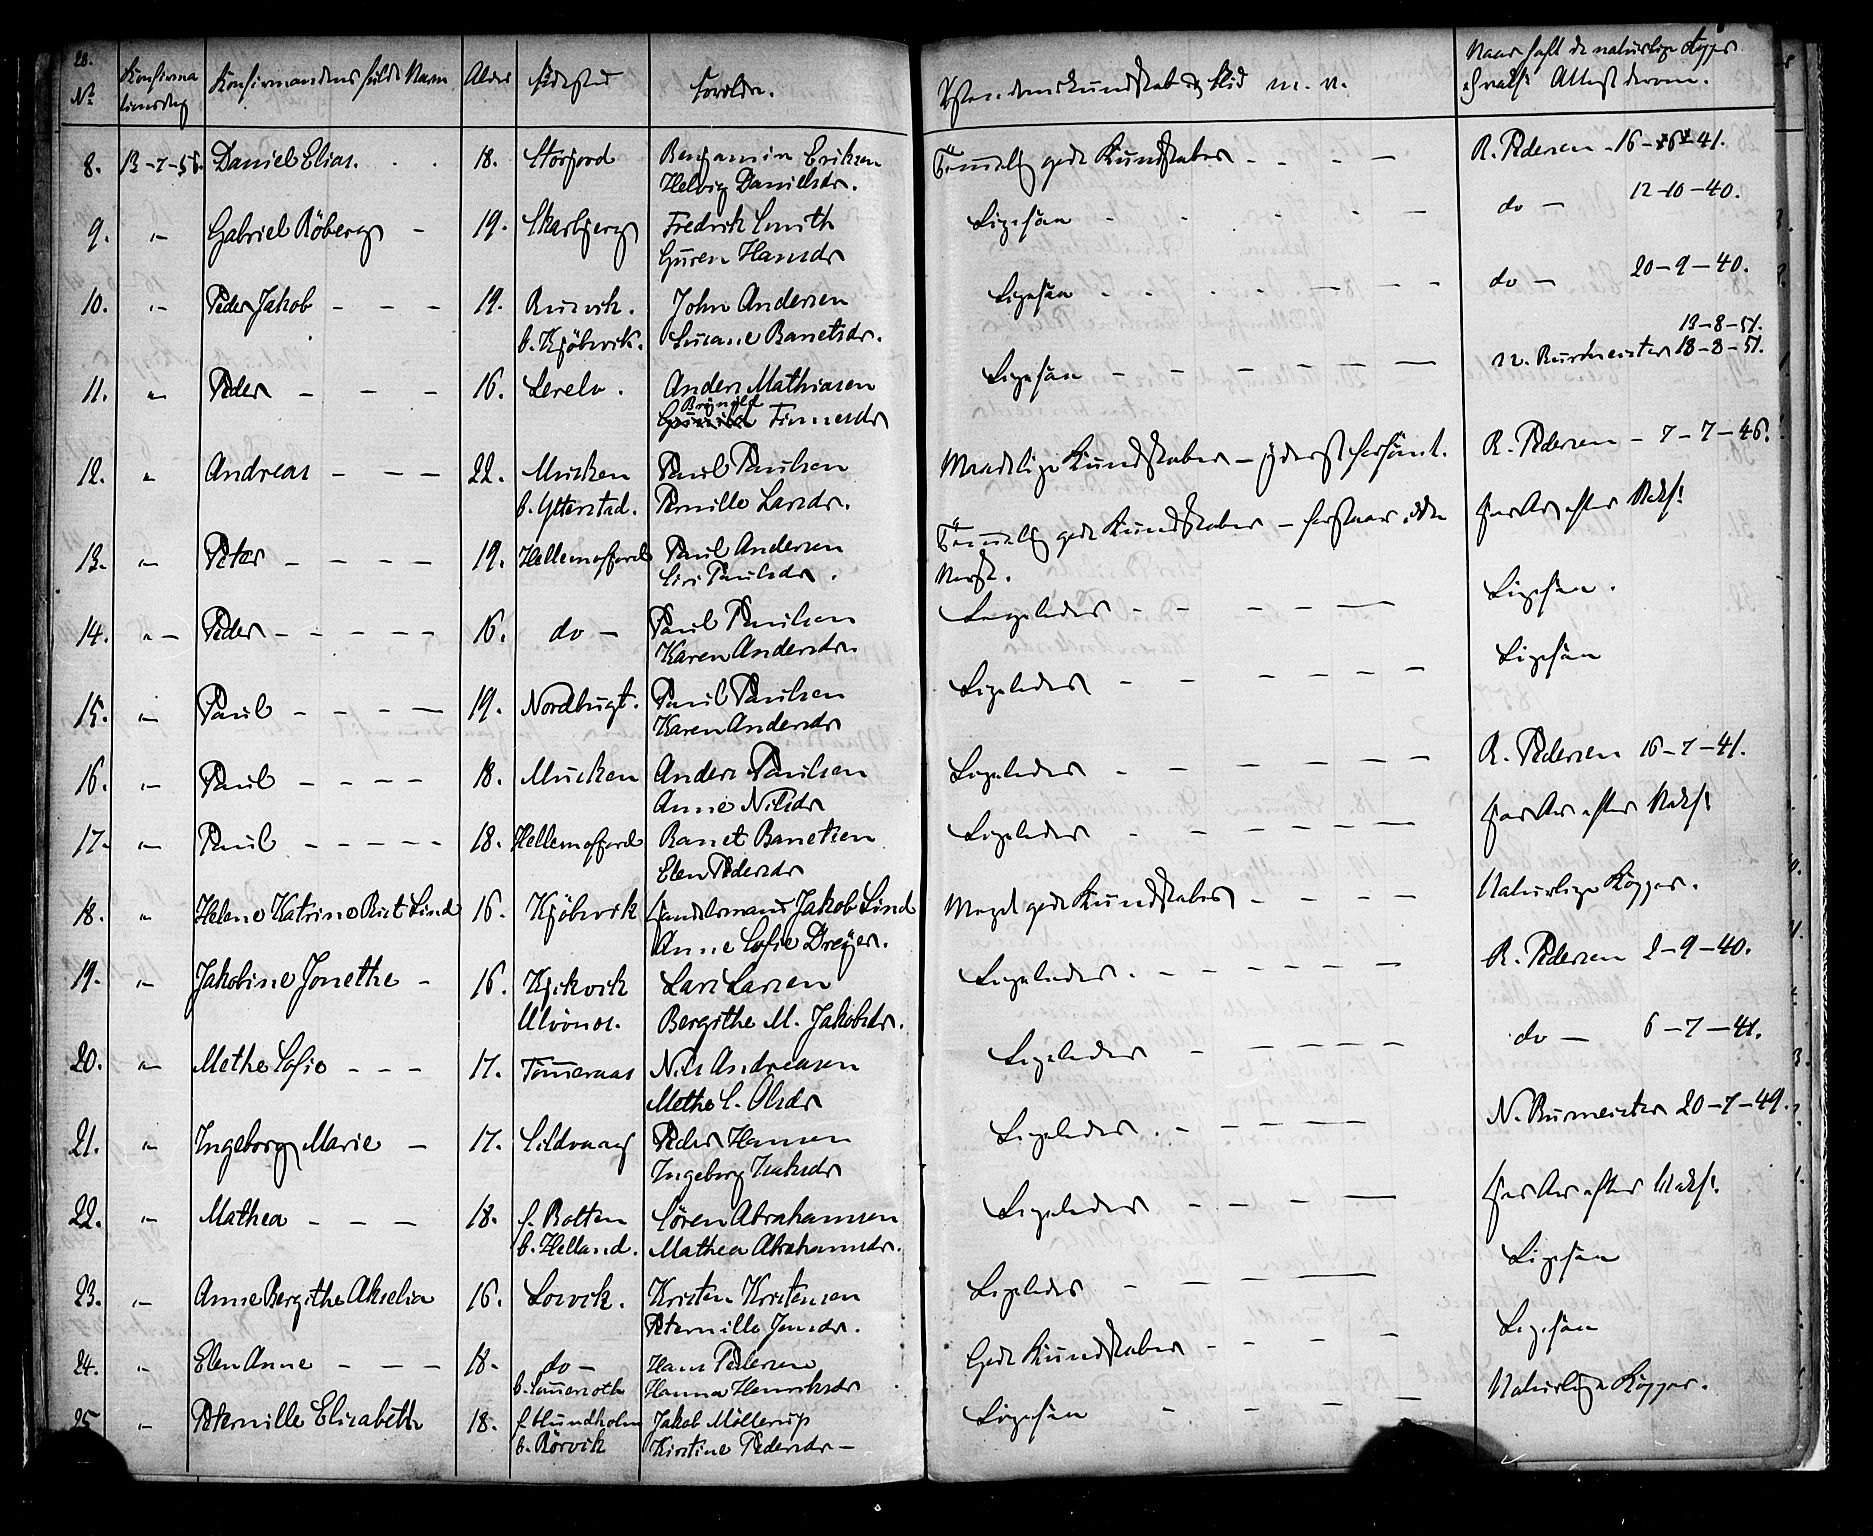 28.
No Konfirmationsdag Konfirmandens fulde Navn Alder Födested Forældre. Christendomskundskab og Flid m. v. Naar haft de naturlige Kopper eller vakc. Attest derom.
8. 13-7-56. Daniel Elias. 18. Storfjord Benjamin Eriksen Temmelig gode Kundskaber R. Pedersen - 16-    -41.
Helvig Danielsdr.
9. " Gabriel Röberg 19. Skarbjerg Fredrik Smith Ligesaa do - 12-10-40.
Guren Hansdr
10. " Peder Jakob 19. Rusvik. John Andersen Ligesaa do - 20-9-40.
b. Kjöbvik. Susane Banetsdr.
13-8-51.
11. " Peder 16. Lerelv. Anders Mathiasen Ligesaa N. Burmeister 18-8-51.
Brynild
Gunild Finnesdr
12. " Andreas 22. Musken Paul Paulsen Maadelige Kundskaber - yderst forsömt. R. Pedersen - 7-7-46.
b. Ytterstad. Pernille Larsdr.
13. " Peter 19. Hellemofjord Paul Andersen Temmelig gode Kundskaber - forstaar ikke Har Ar efter Vakc.
Siri Paulsdr. Norsk.
14. " Peder 16. do - Paul Paulsen Ligeledes Ligesaa.
Karen Andersdr
15. " Paul 19. Nordbugt. Paul Paulsen Ligeledes Ligesaa
Karen Andersdr
16. " Paul 18. Musken Anders Paulsen Ligeledes R. Pedersen 16-7-41.
Anne Nilsdr
17. " Paul 18. Hellemofjord Banet Banetsen Ligeledes Har Ar efter Vakc.
Elen Pedersdr
18. " Helene Katrine Rist Lind 16. Kjöbvik Handelsmand Jakob Lind Meget gode Kundskaber Naturlige Kopper.
Anne Sofie Dreyer.
19. " Jakobine Jonethe 16. Kjekvik Lars Larsen Ligeledes. R. Pedersen 2-9-40.
Ulvönes. Bergithe M. Jakobsdr.
20. " Methe Sofie 17. Tömmeraas Nils Andreasen Ligeledes do - 6-7-41.
Methe S. Olsdr
21. " Ingeborg Marie 17. Sildvaag Peder Hansen Ligeledes. N. Burmeister 20-7-49.
Ingeborg Isaksdr
22. " Mathea 18. f. Botten Sören Abrahamsen Ligeledes Har Ar efter Vakc.
b. Helland. Mathea Abrahamsdr.
23. " Anne Bergithe Akselia 16. Losvik. Kristen Kristensen Ligeledes Ligesaa
Peternille Jensdr.
24. " Elen Anne 18. do - Hans Pedersen Gode Kundskaber Ligesaa
b. Hanna Henriksdr
25 " Peternille Elisabeth 18. f. Hundholm Jakob Möllerup Ligesaa Naturlige Kopper.
b. Rörvik Kirstine Pedersdr -